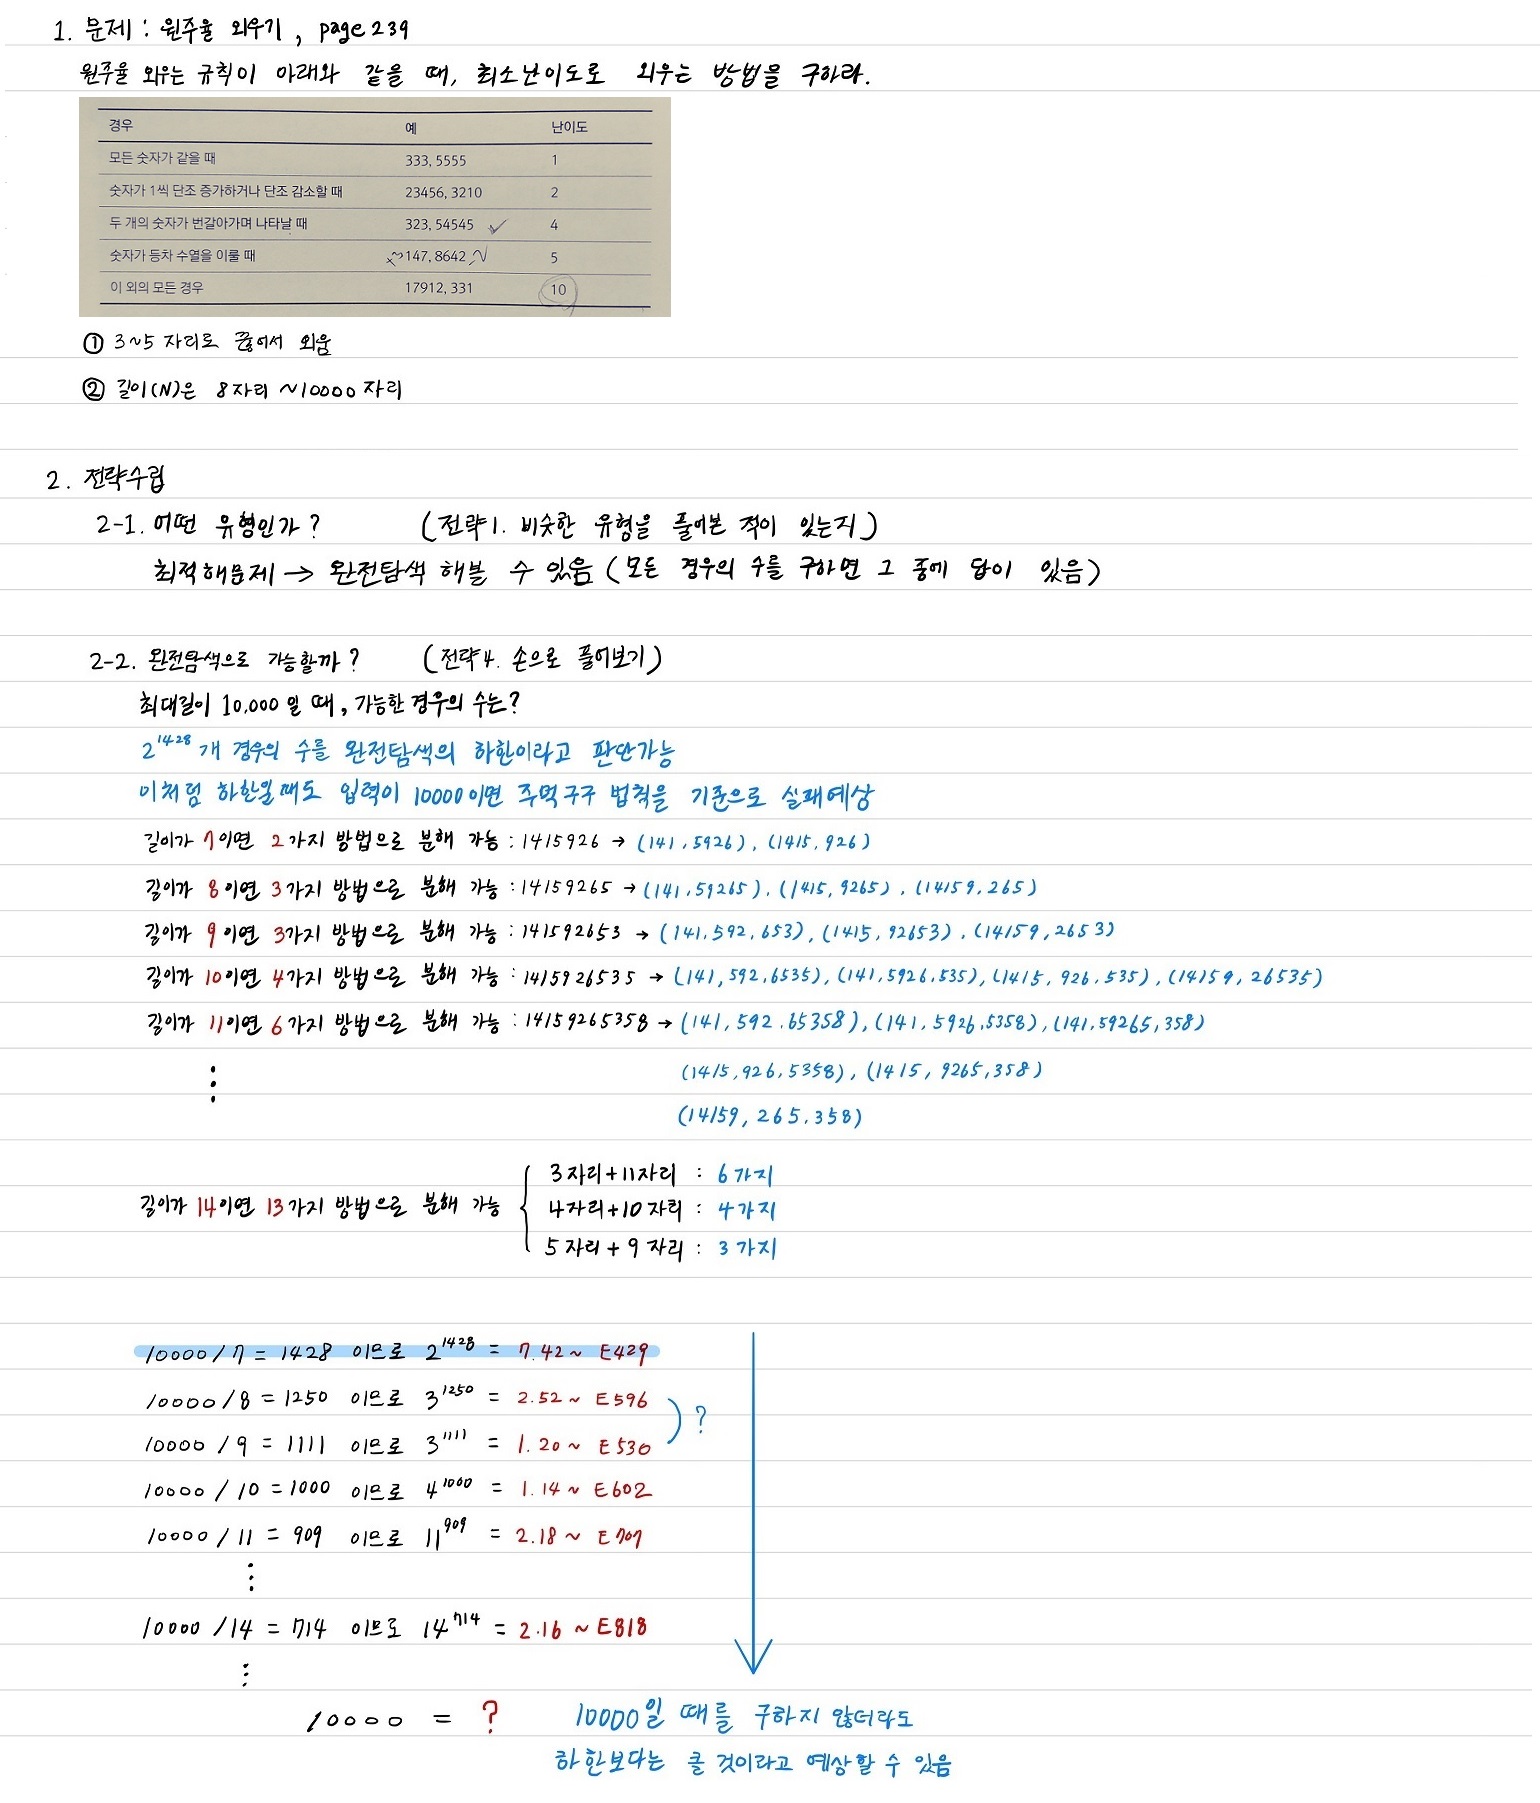 1. 문제 : 원주율 외우기, page 239
원주율 외우는 규칙이 아래와 같을 때, 최소난이도로 외우는 방법을 구하라.
경우 예 난이도
모든 숫자가 같을 때 333, 5555 1
숫자가 1씩 단조 증가하거나 단조 감소할 때 23456, 3210 2
두 개의 숫자가 번갈아가며 나타날 때 323, 54545 4
숫자가 등차 수열을 이룰 때 147, 8642 5
이 외의 모든 경우 17912, 331 10
① 3~5 자리로 끊어서 외움
② 길이(N)은 8자리 ~10000 자리
2. 전략수립
2-1. 어떤 유형인가? (전략1. 비슷한 유형을 풀어본 적이 있는지)
최적해문제 → 완전탐색 해볼 수 있음 (모든 경우의 수를 구하면 그 중에 답이 있음)
2-2. 완전탐색으로 가능할까? (전략4. 손으로 풀어보기)
최대길이 10,000 일 때, 가능한 경우의 수는?
2^1428 개 경우의 수를 완전탐색의 하한이라고 판단가능
이처럼 하한일때도 입력이 10000이면 주먹구구 법칙을 기준으로 실패예상
길이가 7이면 2가지 방법으로 분해 가능 : 1415926 → (141, 5926), (1415, 926)
길이가 8이면 3가지 방법으로 분해 가능 : 14159265 → (141, 59265), (1415, 9265), (14159, 265)
길이가 9이면 3가지 방법으로 분해 가능 : 141592653 → (141, 592, 653), (1415, 92653), (14159, 2653)
길이가 10이면 4가지 방법으로 분해 가능 : 1415926535 → (141, 592, 6535), (141, 5926, 535), (1415, 926, 535), (14159, 26535)
길이가 11이면 6가지 방법으로 분해 가능 : 14159265358 → (141, 592, 65358), (141, 5926, 5358), (141, 59265, 358)
(1415, 926, 5358), (1415, 9265, 358)
(14159, 265, 358)
3자리+11자리 : 6가지
길이가 14이면 13가지 방법으로 분해 가능 4자리+10자리 : 4가지
5자리+9자리 : 3가지
10000/7 = 1428 이므로 2^1428 = 7.42~ E429
10000/8 = 1250 이므로 3^1250 = 2.52~ E596
?
10000/9 = 1111 이므로 3^1111 = 1.20~ E530
10000/10 = 1000 이므로 4^1000 = 1.14~ E602
10000/11 = 909 이므로 11^909 = 2.18~ E707
10000/14 = 714 이므로 14^714 = 2.16~ E818
10000 = ? 10000일 때를 구하지 않더라도
하한보다는 클 것이라고 예상할 수 있음